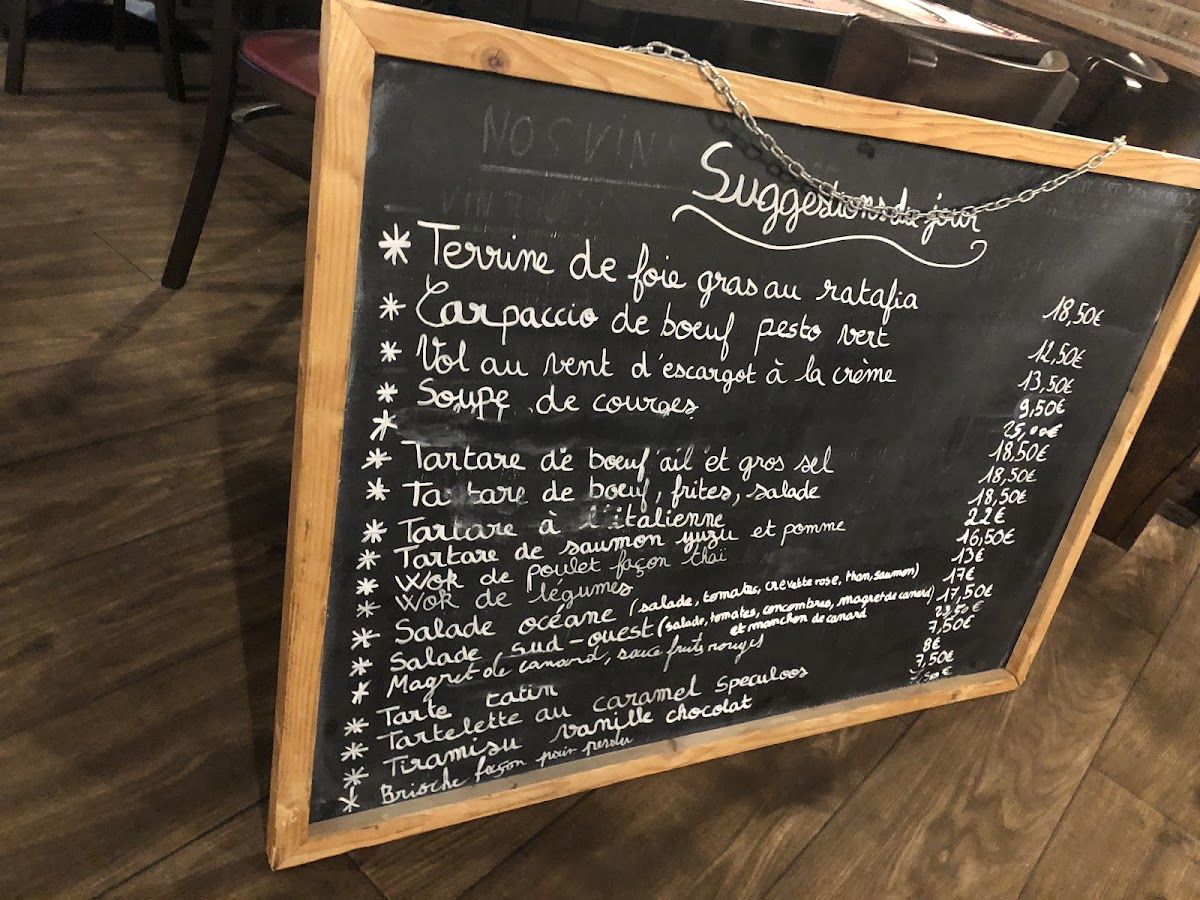 NOS VIN
VIN
Suggestions du jour
* Terrine de foie gras au ratafia 18,50€
* Carpaccio de boeuf pesto vert 12,50€
* Vol au vent d'escargot à la crème 13,50€
* Soupe de courges 9,50€
* 25,00€
* Tartare de boeuf ail et gros sel 18,50€
* Tartare de boeuf, frites, salade 18,50€
* Tartare à l'italienne 18,50€
* Tartare de saumon yuzu et pomme 22€
* Wok de poulet façon thaï 16,50€
* Wok de légumes 13€
* Salade océane (salade, tomates, crevette rose, thon, saumon) 17€
* Salade sud-ouest (salade, tomates, concombres, magret de canard) 17,50€
et manchon de canard
* Magret de canard, sauce fruits rouges 23,50€
* Tarte tatin 7,50€
* Tartelette au caramel speculoos 8€
* Tiramisu vanille chocolat 7,50€
* Brioche façon pain perdu